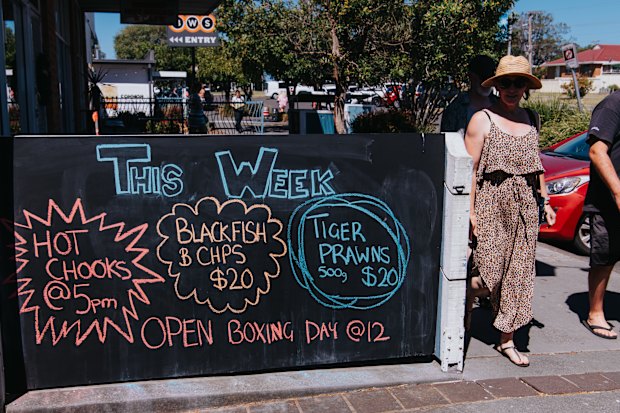 BWS
<<< ENTRY
THIS WEEK
HOT
CHOOKS
@5pm
BLACKFISH
B CHPS
$20
TIGER
PRAWNS
500g $20
OPEN BOXING DAY @12